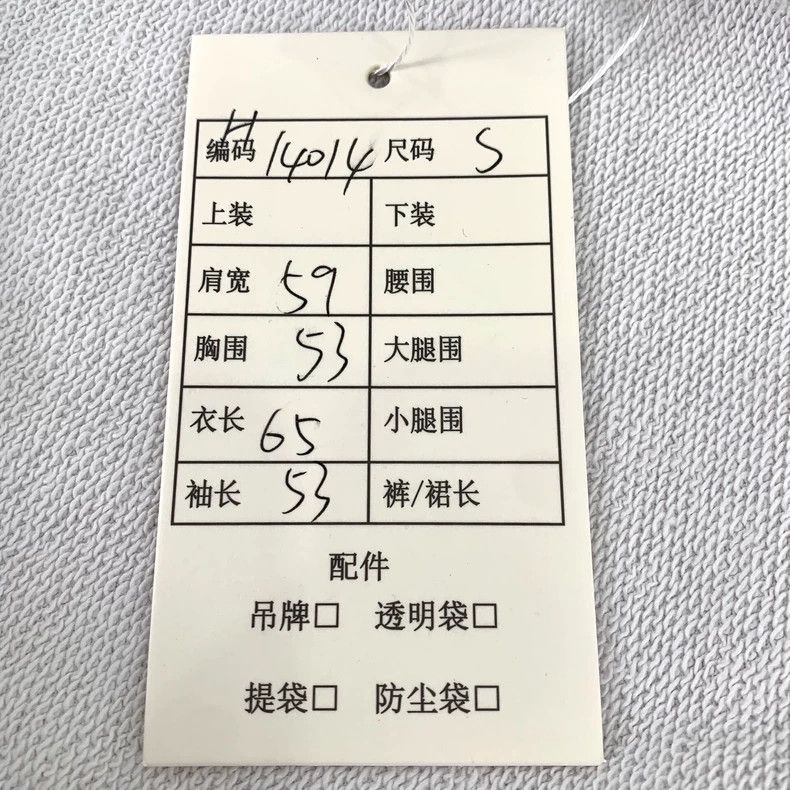 编码 H14014 尺码 S
上装 下装
肩宽 59 腰围
胸围 53 大腿围
衣长 65 小腿围
袖长 53 裤/裙长
配件
吊牌□ 透明袋□
提袋□ 防尘袋□